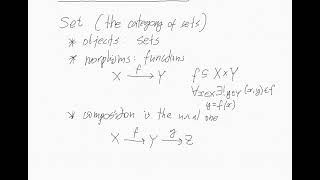 Set (the category of sets)
* objects: sets
* morphisms: functions
X —f→ Y f ⊆ X×Y
∀x∈X ∃! y∈Y (x,y)∈f
y=f(x)
* composition is the usual one
X —f→ Y —g→ Z